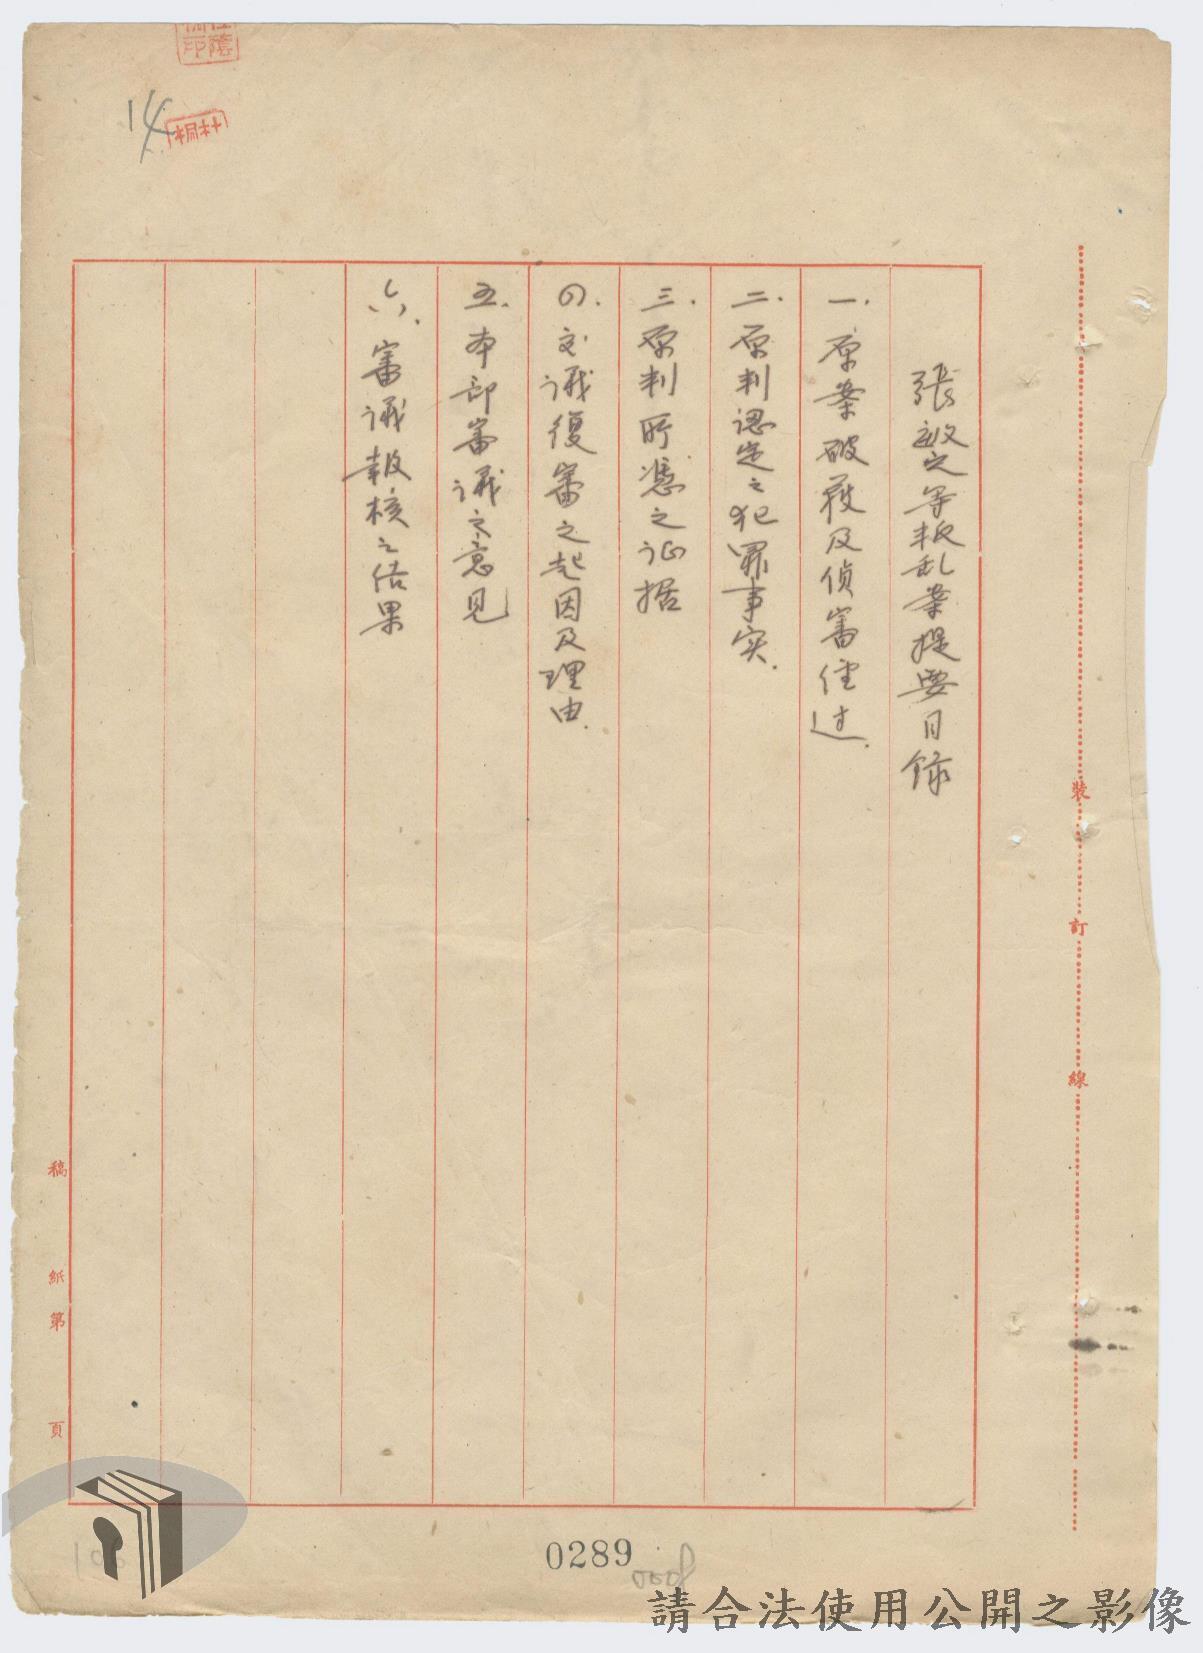 張敏之等叛乱案提要目録
一.原案破获及偵審経过.
二.原判認定之犯罪事实.
三.原判所憑之证据
四.交议復審之起因及理由.
五.本部審议之意見
六.審议報核之结果
裝
訂
線
稿
紙
第
頁
14
0289
請合法使用公開之影像